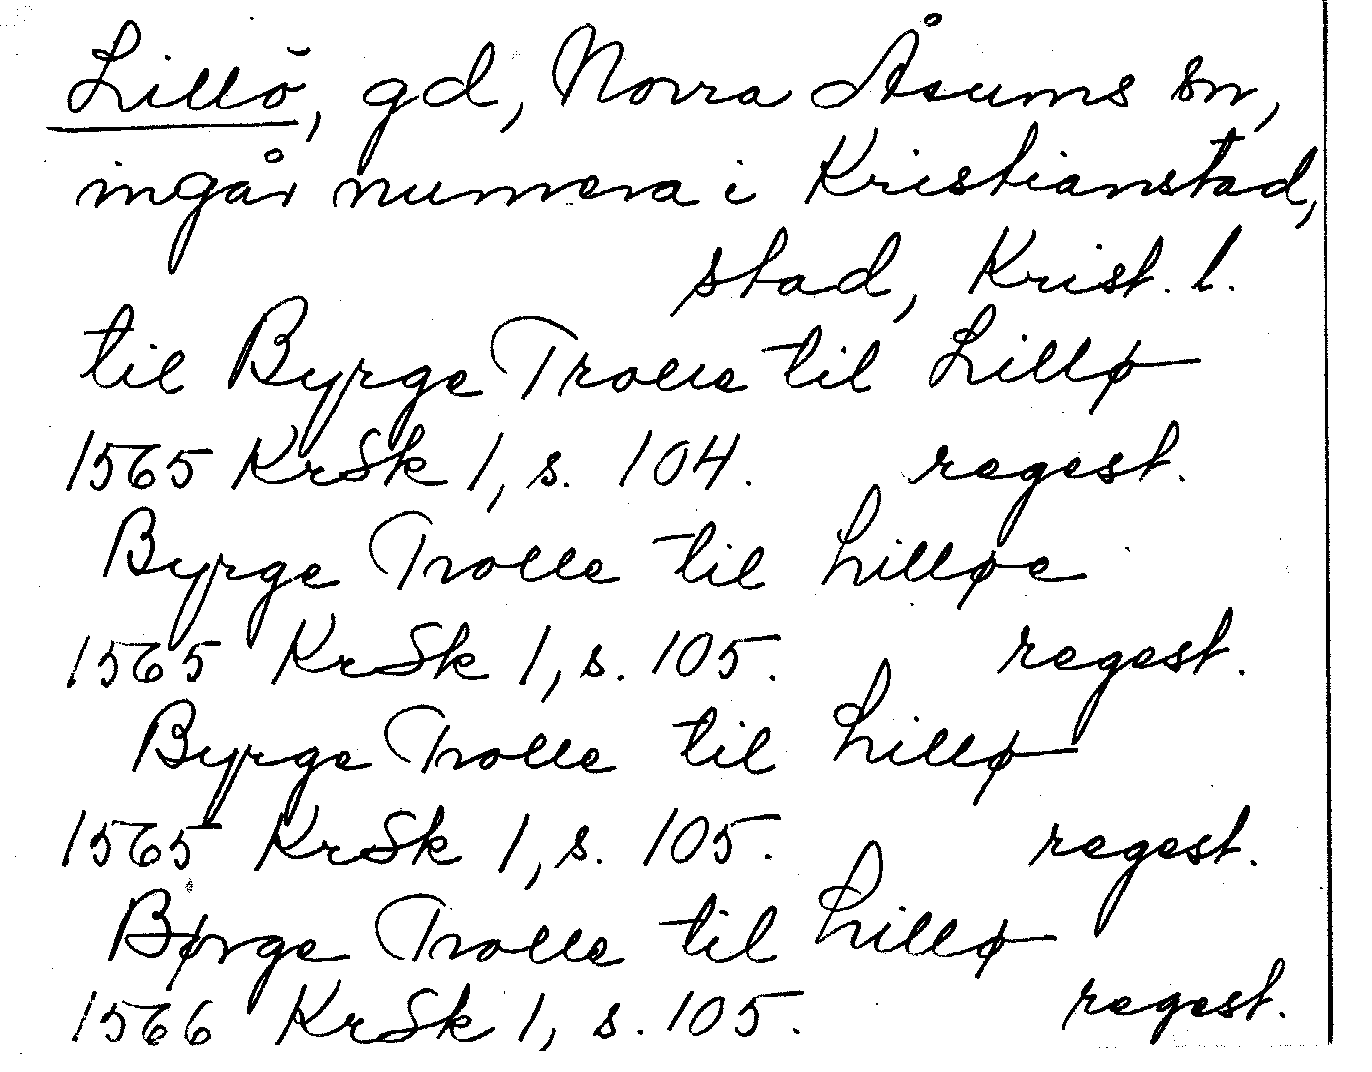 Lillö, gd, Norra Åsums sn,
ingår numera i Kristianstad,
stad, Krist. l.
til Byrge Trolle til Lillø
1565 KrSk 1, s. 104. regest.
Byrge Trolle til Lilløe
1565 KrSk 1, s. 105. regest.
Byrge Trolle til Lillø
1565 KrSk 1, s. 105. regest.
Børge Trolle til Lillø
1566 KrSk 1, s. 105. regest.